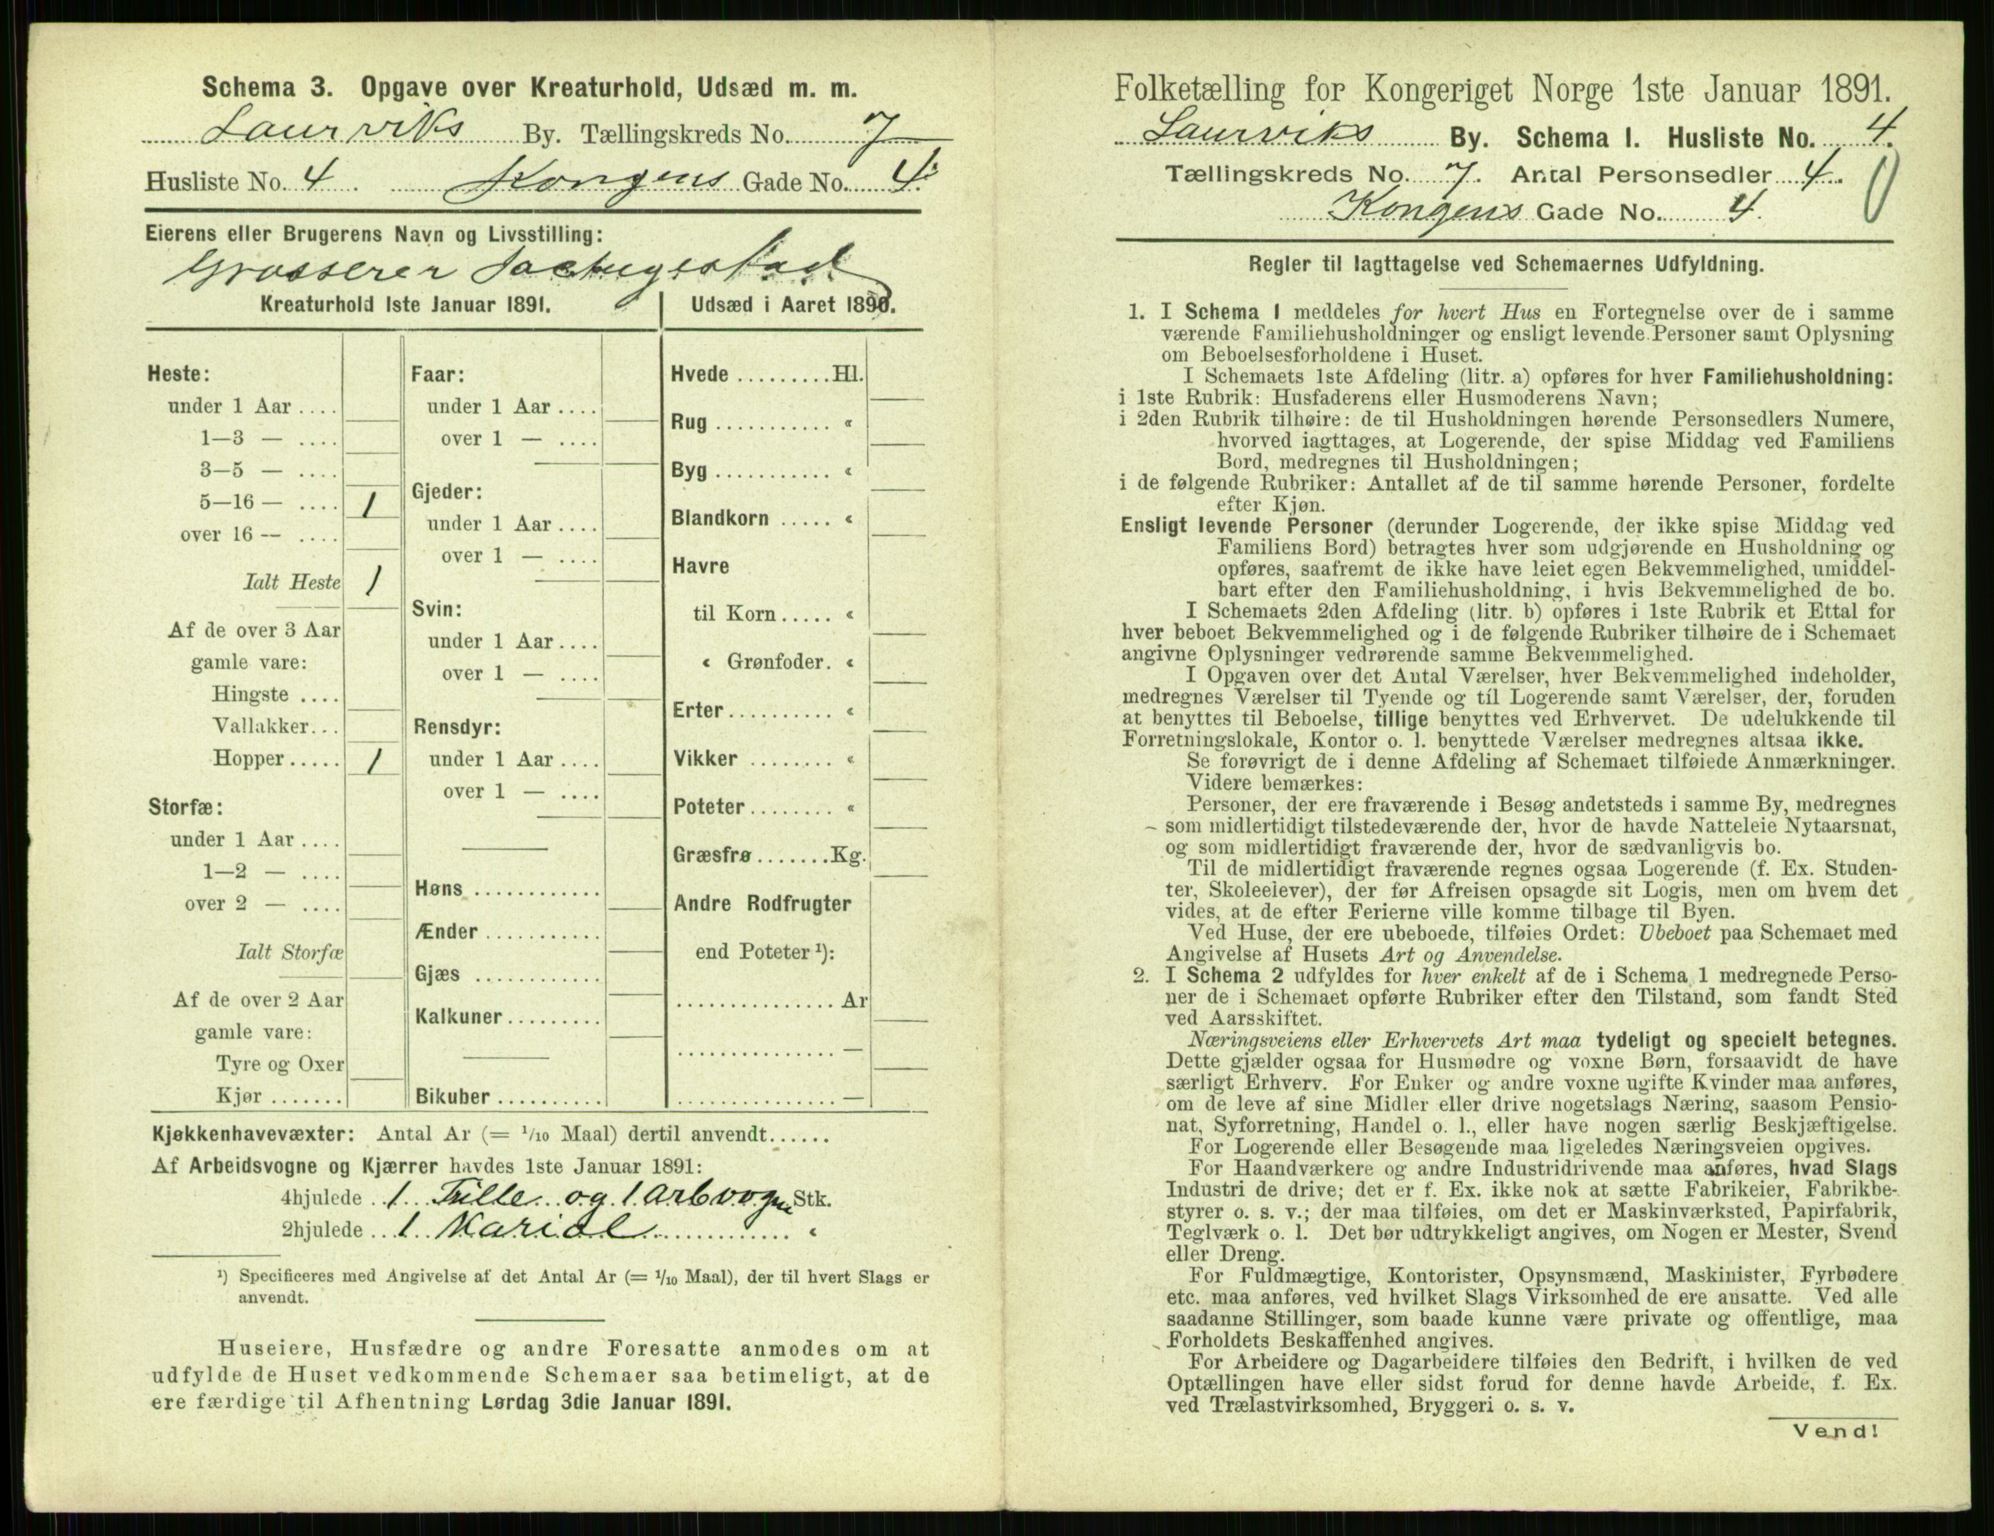 Schema 3. Opgave over Kreaturhold, Udsæd m. m.
Laurviks By. Tællingskreds No. 7
Husliste No. 4 Kongens Gade No. 4.
Eierens eller Brugerens Navn og Livsstilling:
Grosserer
Kreaturhold 1ste Januar 1891.
Heste:
under 1 Aar ....
1—3 — ....
3—5 — ....
5—16 — .... 1
over 16 — ....
Ialt Heste 1
Af de over 3 Aar
gamle vare:
Hingste ....
Vallakker...
Hopper ..... 1
Storfæ:
under 1 Aar ....
1—2 — ....
over 2 — ....
Ialt Storfæ
Af de over 2 Aar
gamle vare:
Tyre og Oxer
Kjør .......
Faar:
under 1 Aar ....
over 1 — ....
Gjeder:
under 1 Aar ....
over 1 — ....
Svin:
under 1 Aar ....
over 1 — ....
Rensdyr:
under 1 Aar ....
over 1 — ....
Høns ............
Ænder ...........
Gjæs ............
Kalkuner .........
Bikuber ..........
Udsæd i Aaret 1890.
Hvede ......... Hl.
Rug ........... «
Byg ........... «
Blandkorn ..... «
Havre
til Korn ..... «
« Grønfoder. «
Erter .......... «
Vikker ........ «
Poteter ........ «
Græsfrø ....... Kg.
Andre Rodfrugter
end Poteter ¹):
............... Ar
............... —
............... —
Kjøkkenhavevæxter: Antal Ar (= 1/10 Maal) dertil anvendt......
Af Arbeidsvogne og Kjærrer havdes 1ste Januar 1891:
4hjulede .. 1 Trille og 1 Arbvogn Stk.
2hjulede .. 1 Kariol «
¹) Specificeres med Angivelse af det Antal Ar (= 1/10 Maal), der til hvert Slags er
anvendt.
Huseiere, Husfædre og andre Foresatte anmodes om at
udfylde de Huset vedkommende Schemaer saa betimeligt, at de
ere færdige til Afhentning Lørdag 3die Januar 1891.
Folketælling for Kongeriget Norge 1ste Januar 1891.
Laurviks By. Schema 1. Husliste No. 4.
Tællingskreds No. 7. Antal Personsedler 4.
Kongens Gade No. 4.
Regler til Iagttagelse ved Schemaernes Udfyldning.
1. I Schema 1 meddeles for hvert Hus en Fortegnelse over de i samme
værende Familiehusholdninger og ensligt levende Personer samt Oplysning
om Beboelsesforholdene i Huset.
I Schemaets 1ste Afdeling (litr. a) opføres for hver Familiehusholdning:
i 1ste Rubrik: Husfaderens eller Husmoderens Navn;
i 2den Rubrik tilhøire: de til Husholdningen hørende Personsedlers Numere,
hvorved iagttages, at Logerende, der spise Middag ved Familiens
Bord, medregnes til Husholdningen;
i de følgende Rubriker: Antallet af de til samme hørende Personer, fordelte
efter Kjøn.
Ensligt levende Personer (derunder Logerende, der ikke spise Middag ved
Familiens Bord) betragtes hver som udgjørende en Husholdning og
opføres, saafremt de ikke have leiet egen Bekvemmelighed, umiddel-
bart efter den Familiehusholdning, i hvis Bekvemmelighed de bo.
I Schemaets 2den Afdeling (litr. b) opføres i 1ste Rubrik et Ettal for
hver beboet Bekvemmelighed og i de følgende Rubriker tilhøire de i Schemaet
angivne Oplysninger vedrørende samme Bekvemmelighed.
I Opgaven over det Antal Værelser, hver Bekvemmelighed indeholder,
medregnes Værelser til Tyende og til Logerende samt Værelser, der, foruden
at benyttes til Beboelse, tillige benyttes ved Erhvervet. De udelukkende til
Forretningslokale, Kontor o. l. benyttede Værelser medregnes altsaa ikke.
Se forøvrigt de i denne Afdeling af Schemaet tilføiede Anmærkninger.
Videre bemærkes:
Personer, der ere fraværende i Besøg andetsteds i samme By, medregnes
som midlertidigt tilstedeværende der, hvor de havde Natteleie Nytaarsnat,
og som midlertidigt fraværende der, hvor de sædvanligvis bo.
Til de midlertidigt fraværende regnes ogsaa Logerende (f. Ex. Studen-
ter, Skoleeiever), der før Afreisen opsagde sit Logis, men om hvem det
vides, at de efter Ferierne ville komme tilbage til Byen.
Ved Huse, der ere ubeboede, tilføies Ordet: Ubeboet paa Schemaet med
Angivelse af Husets Art og Anvendelse.
2. I Schema 2 udfyldes for hver enkelt af de i Schema 1 medregnede Perso-
ner de i Schemaet opførte Rubriker efter den Tilstand, som fandt Sted
ved Aarsskiftet.
Næringsveiens eller Erhvervets Art maa tydeligt og specielt betegnes.
Dette gjælder ogsaa for Husmødre og voxne Børn, forsaavidt de have
særligt Erhverv. For Enker og andre voxne ugifte Kvinder maa anføres,
om de leve af sine Midler eller drive nogetslags Næring, saasom Pensio-
nat, Syforretning, Handel o. l., eller have nogen særlig Beskjæftigelse.
For Logerende eller Besøgende maa ligeledes Næringsveien opgives.
For Haandværkere og andre Industridrivende maa anføres, hvad Slags
Industri de drive; det er f. Ex. ikke nok at sætte Fabrikeier, Fabrikbe-
styrer o. s. v.; der maa tilføies, om det er Maskinværksted, Papirfabrik,
Teglværk o. l. Det bør udtrykkeligt angives, om Nogen er Mester, Svend
eller Dreng.
For Fuldmægtige, Kontorister, Opsynsmænd, Maskinister, Fyrbødere
etc. maa anføres, ved hvilket Slags Virksomhed de ere ansatte. Ved alle
saadanne Stillinger, som baade kunne være private og offentlige, maa
Forholdets Beskaffenhed angives.
For Arbeidere og Dagarbeidere tilføies den Bedrift, i hvilken de ved
Optællingen have eller sidst forud for denne havde Arbeide, f. Ex.
ved Trælastvirksomhed, Bryggeri o. s. v.
Vend!